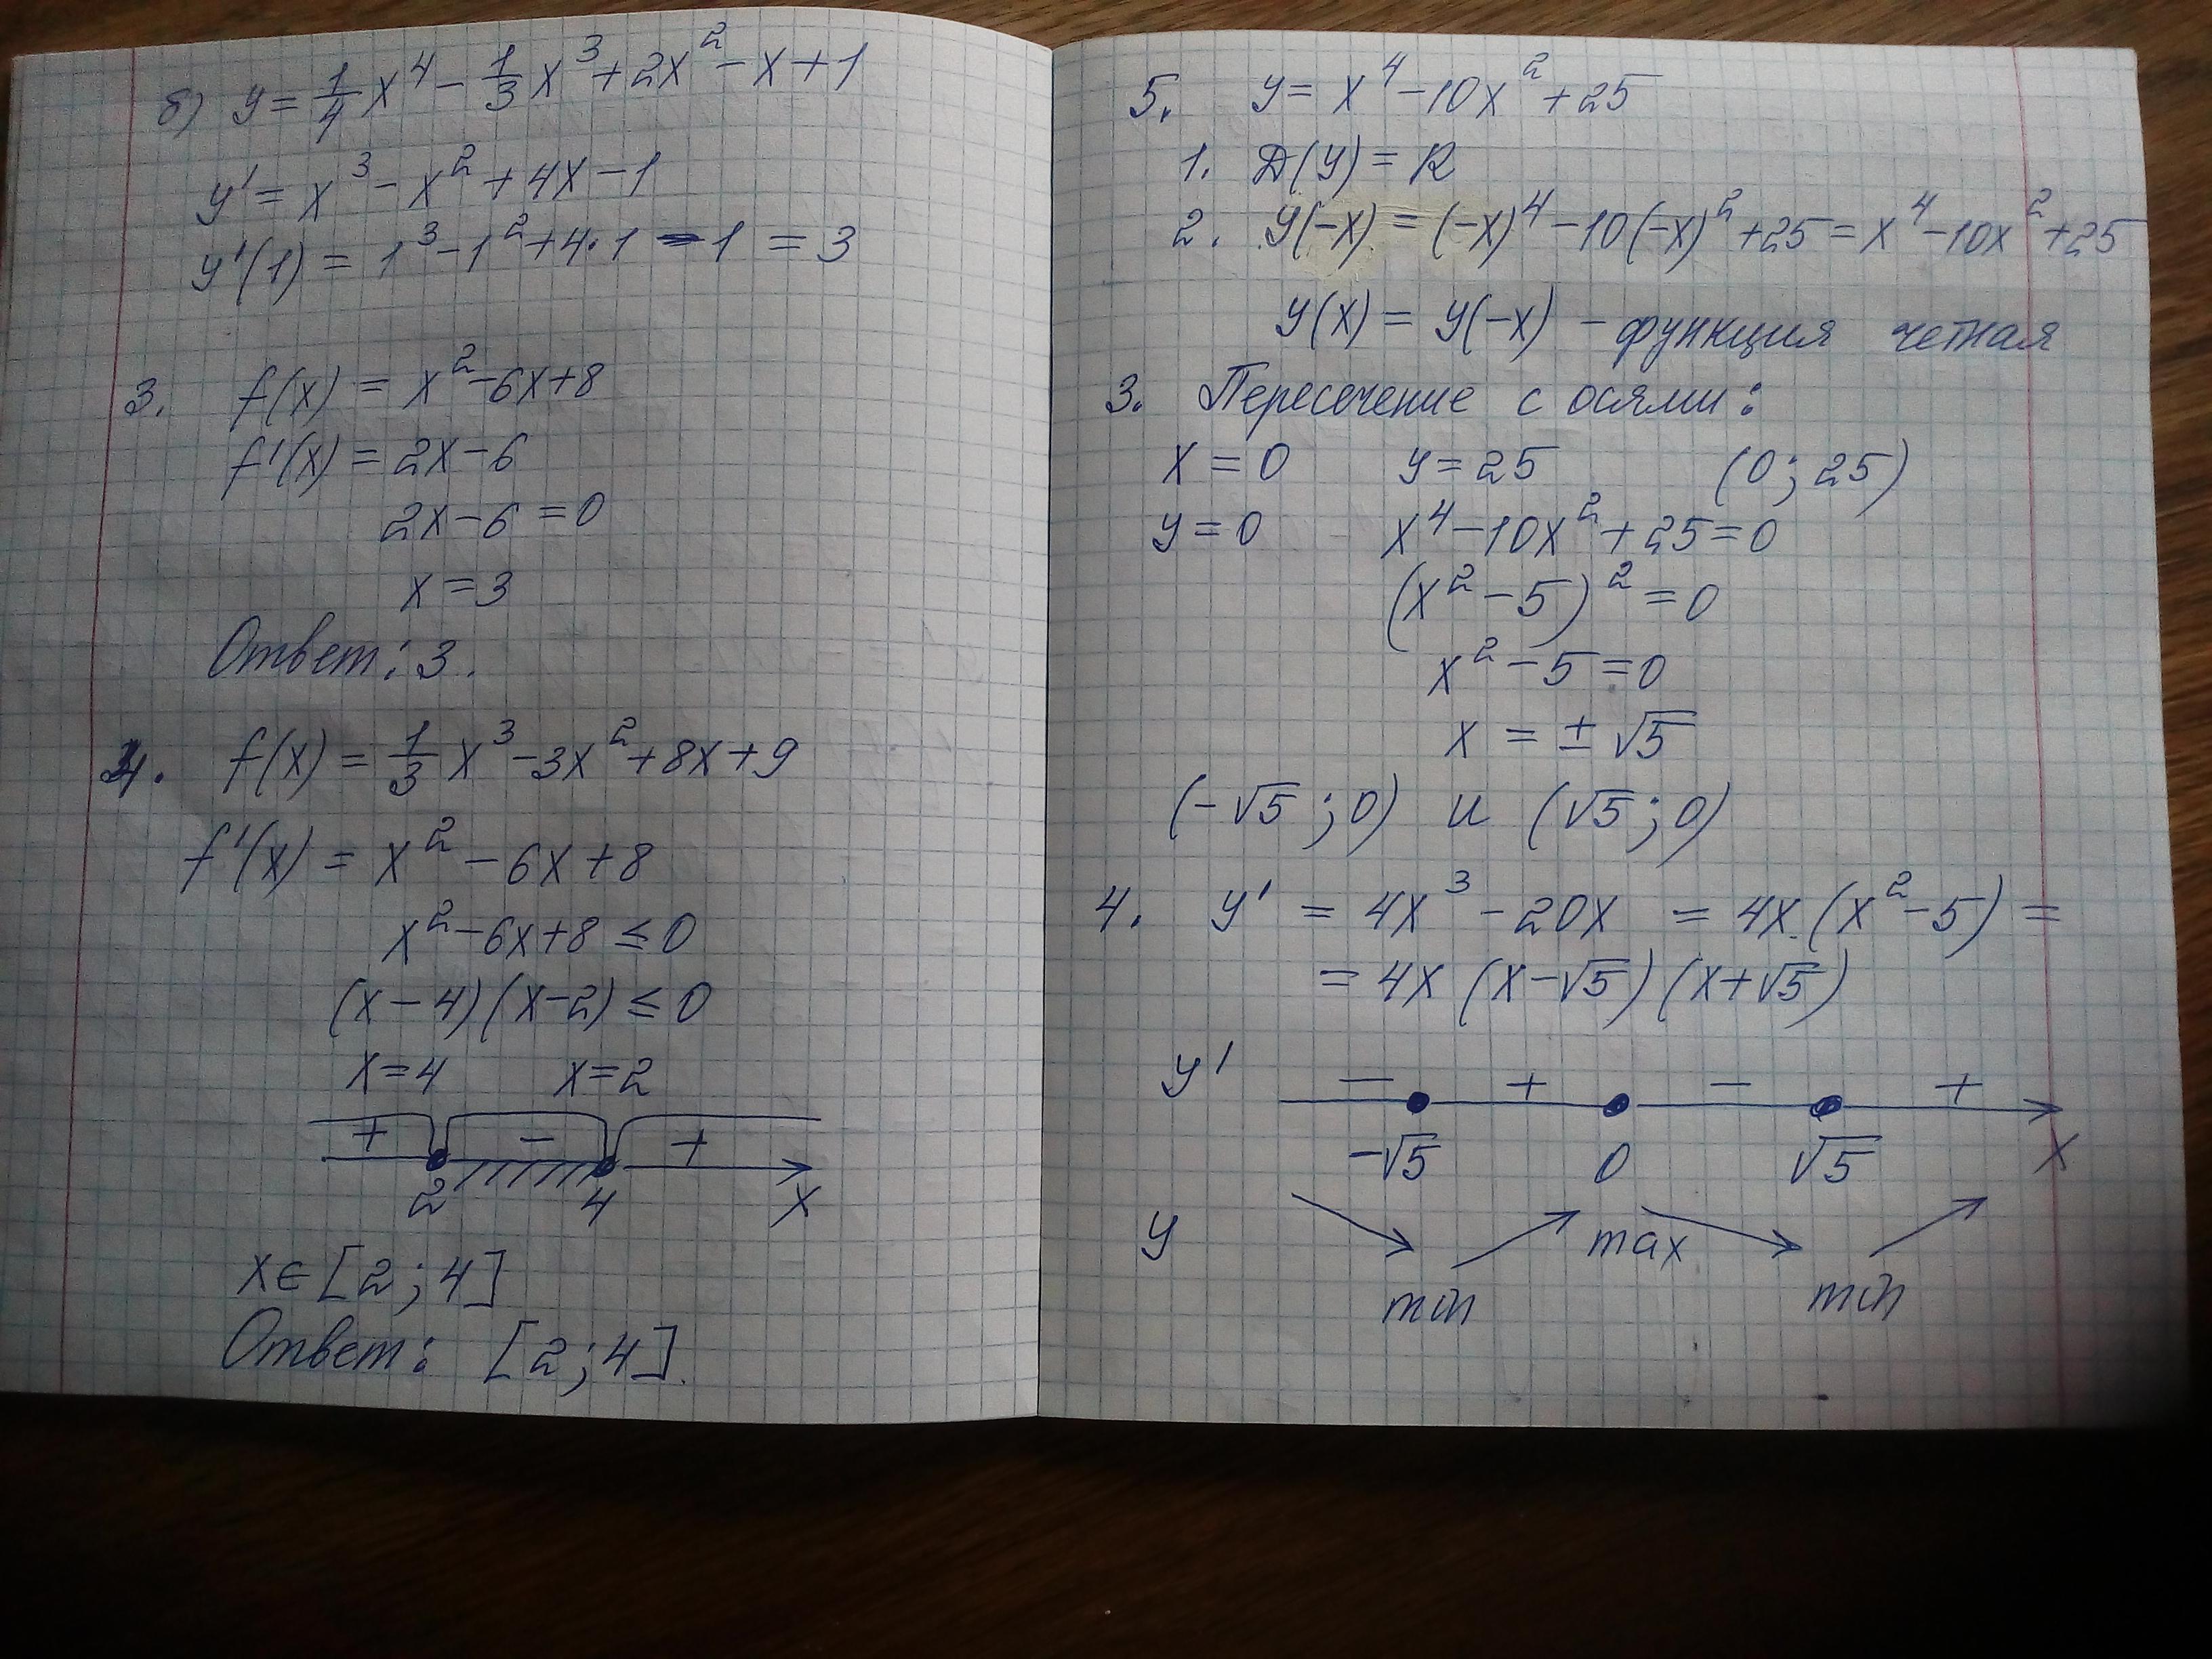 б) y = 1/4 x⁴ - 1/3 x³ + 2x² - x + 1
y' = x³ - x² + 4x - 1
y'(1) = 1³ - 1² + 4·1 - 1 = 3
3. f(x) = x² - 6x + 8
f'(x) = 2x - 6
2x - 6 = 0
x = 3
Ответ: 3.
4. f(x) = 1/3 x³ - 3x² + 8x + 9
f'(x) = x² - 6x + 8
x² - 6x + 8 ≤ 0
(x - 4)(x - 2) ≤ 0
x = 4 x = 2
+ - +
2 4 x
x ∈ [2; 4]
Ответ: [2; 4].
5. y = x⁴ - 10x² + 25
1. D(y) = R
2. y(-x) = (-x)⁴ - 10(-x)² + 25 = x⁴ - 10x² + 25
y(x) = y(-x) - функция четная
3. Пересечение с осями:
x = 0 y = 25 (0; 25)
y = 0 x⁴ - 10x² + 25 = 0
(x² - 5)² = 0
x² - 5 = 0
x = ± √5
(-√5; 0) и (√5; 0)
4. y' = 4x³ - 20x = 4x (x² - 5) =
= 4x (x - √5)(x + √5)
y' - + - +
-√5 0 √5 x
y max
min min